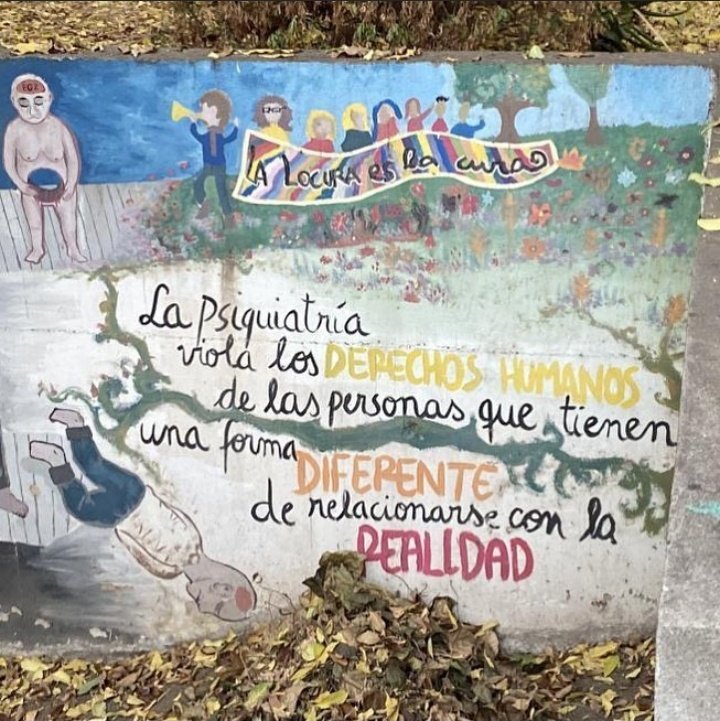 LA LOCURA es la cura
La psiquiatría
viola los DERECHOS HUMANOS
de las personas que tienen
una forma
DIFERENTE
de relacionarse con la
REALIDAD